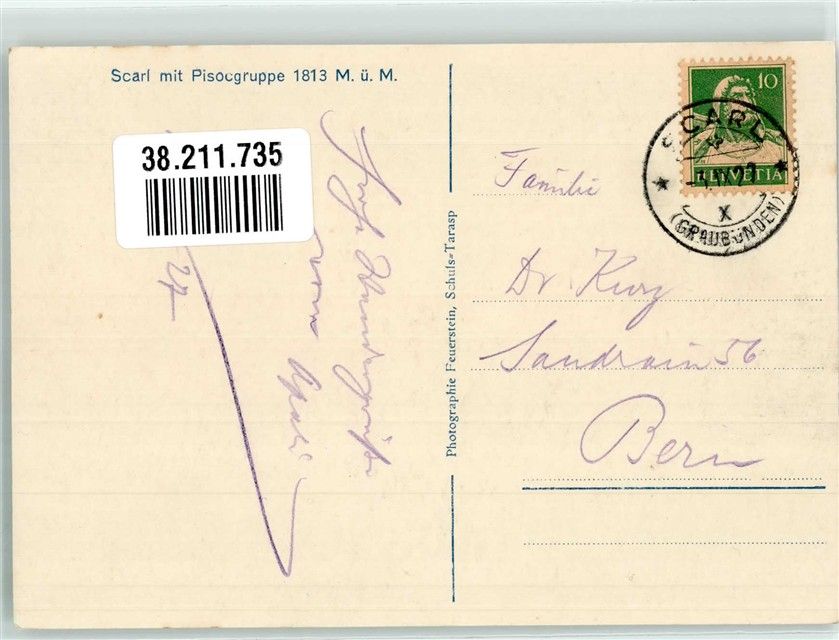 Scarl mit Pisocgruppe 1813 M. ü. M.
38.211.735
Photographie Feuerstein, Schuls=Tarasp
10
HELVETIA
SCARL
X
(GRAUBÜNDEN)
Familie
Dr. Kurz
Sandrain 56
Bern
Wandergrüße
27